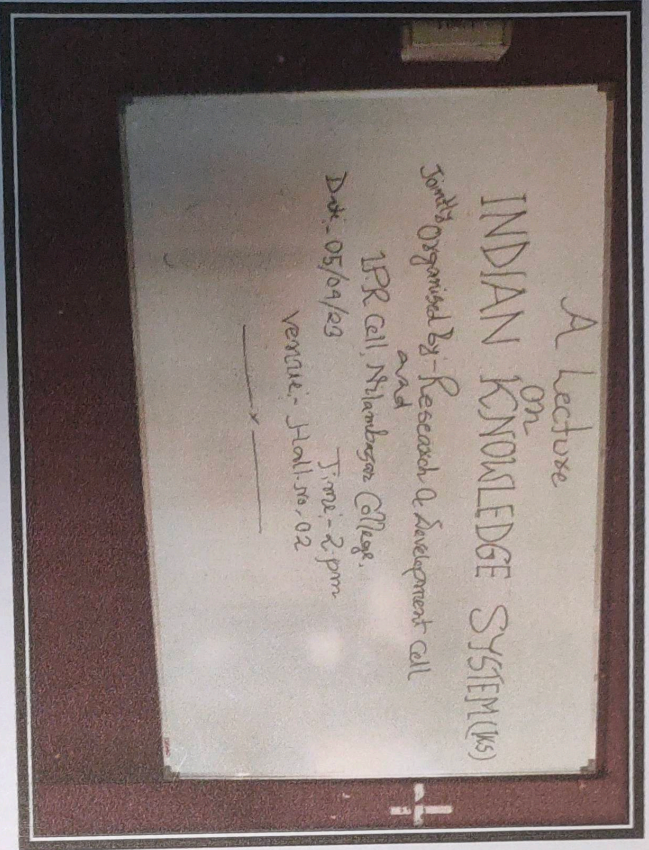 A Lecture
on
INDIAN KNOWLEDGE SYSTEM (IKS)
Jointly Organised By:- Research & Development Cell
and
IPR Cell, Nilambazar College.
Date:- 05/04/23 Time:- 2 pm
Venue:- Hall No. 02